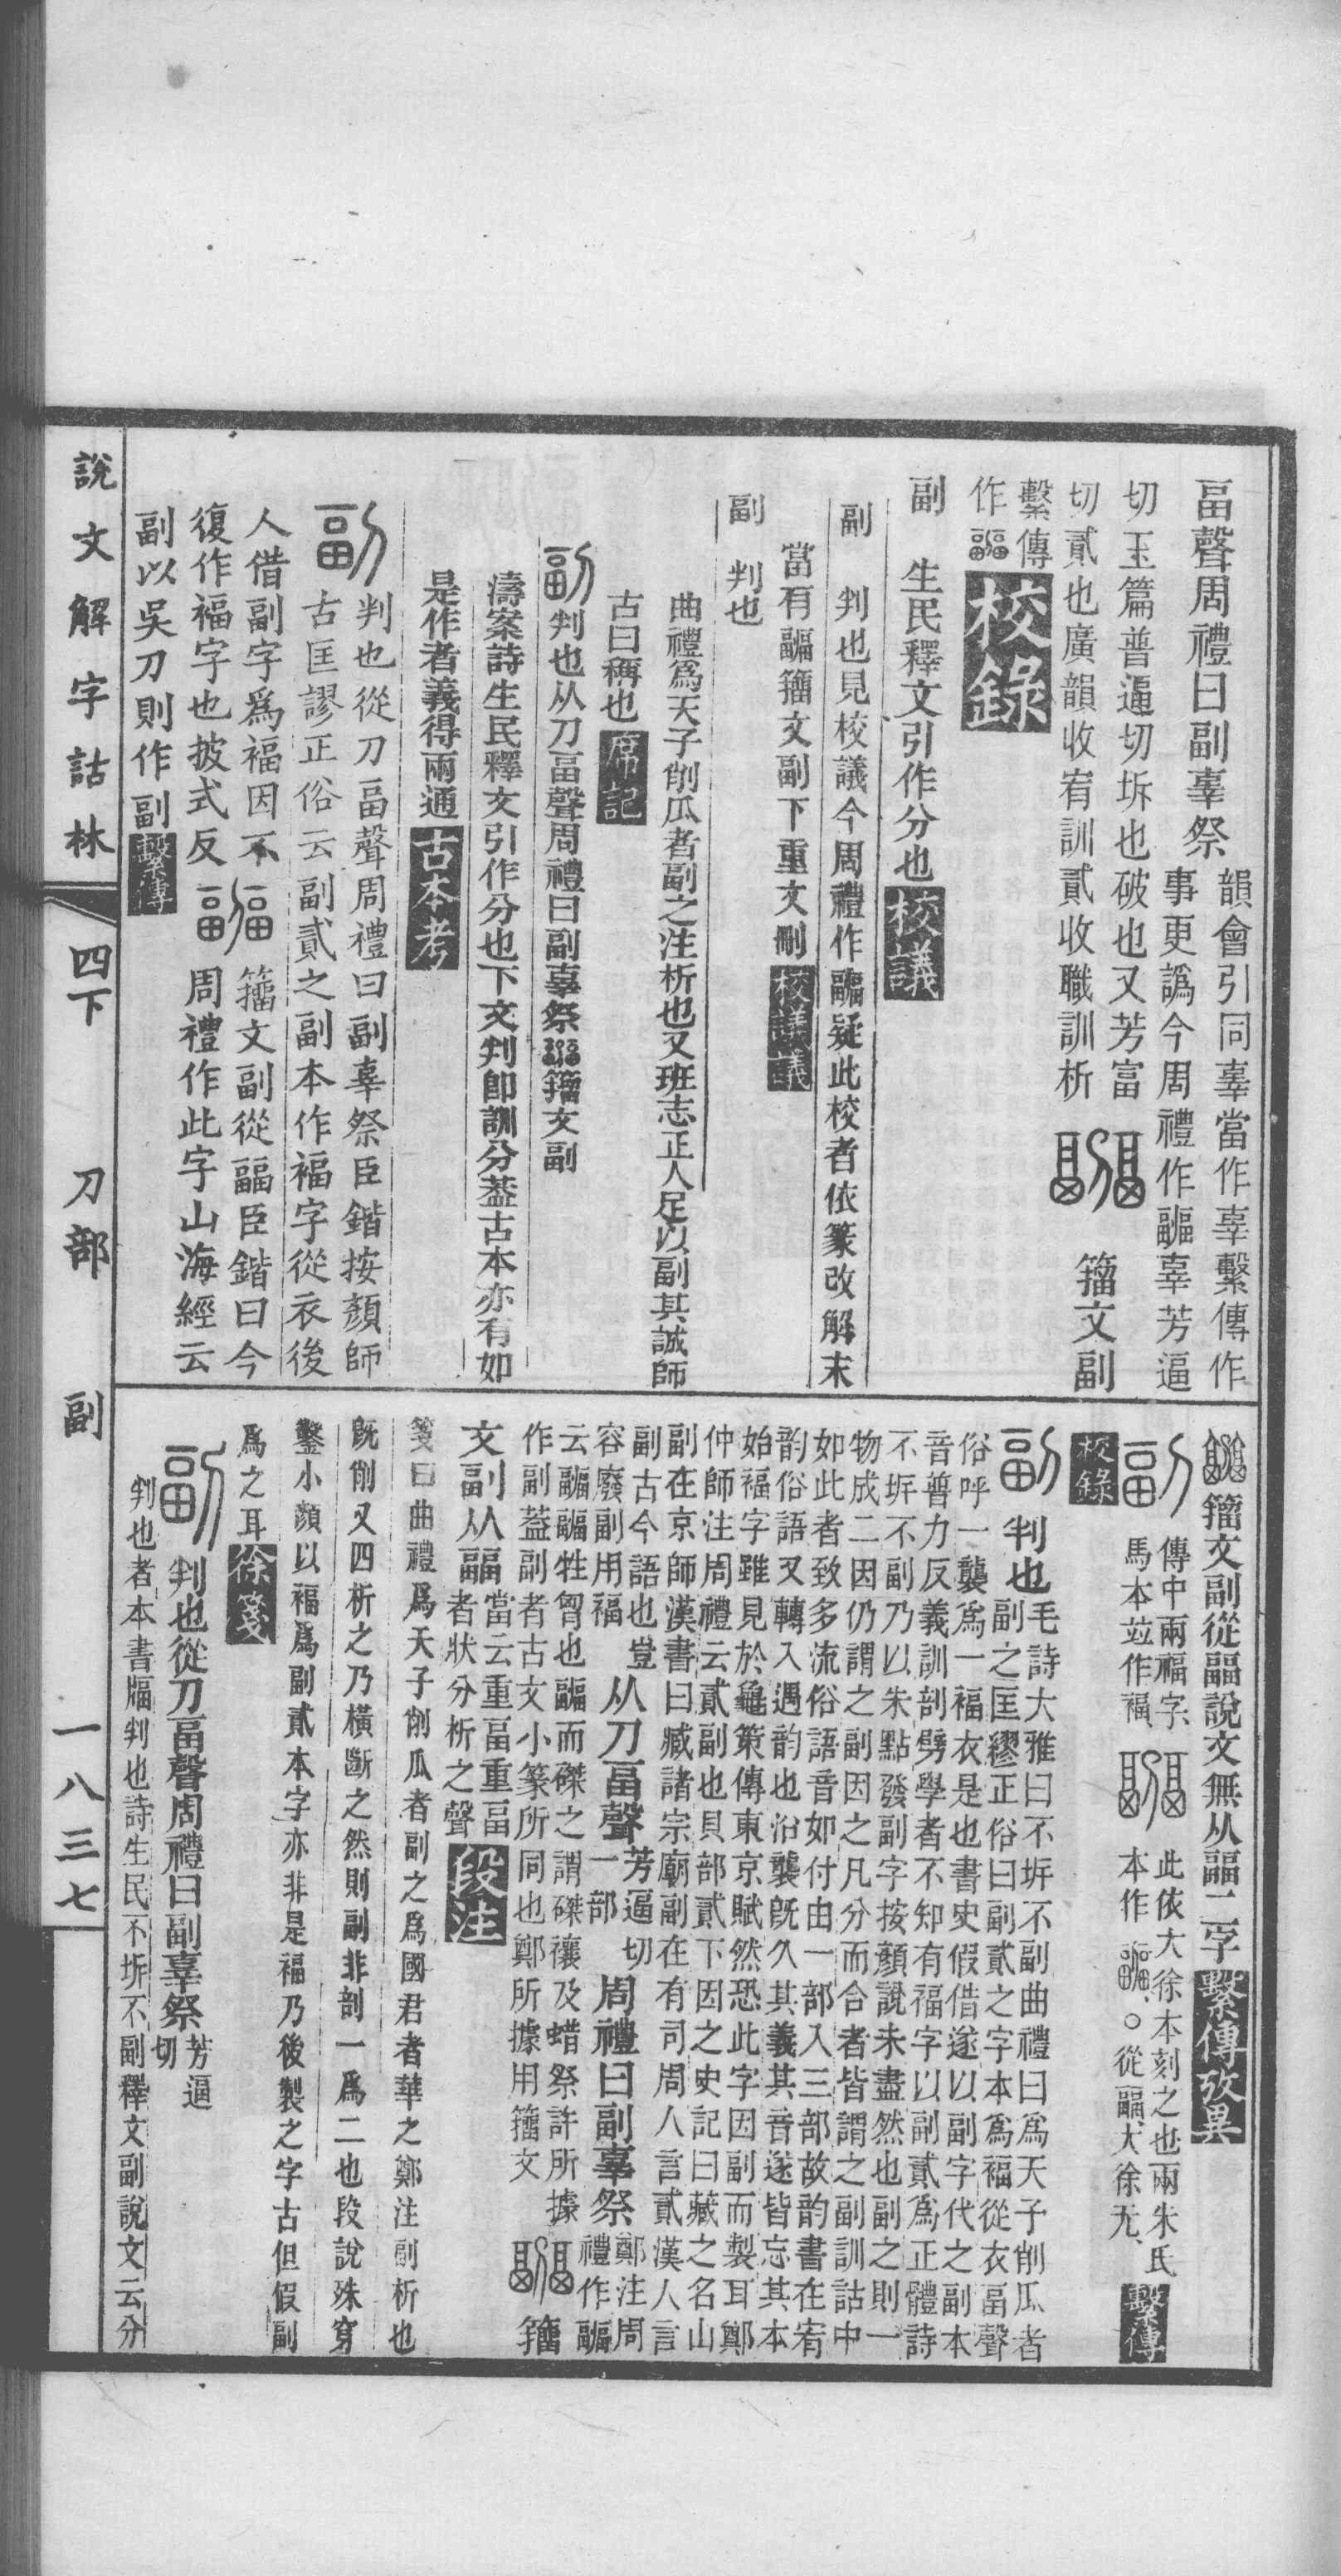 畐聲周禮曰副辜祭
韻會引同辜當作辜繫傳作
事更譌今周禮作疈辜芳逼
切玉篇普逼切坼也破也又芳富
切貳也廣韻收宥訓貳收職訓析
籒文副
繫傳
作疈
校錄
副 生民釋文引作分也校議
副 判也見校議今周禮作疈疑此校者依篆改解末
當有疈籒文副下重文刪校議議
副 判也
曲禮爲天子削瓜者副之注析也又班志正人足以副其誠師
古曰稱也席記
副判也从刀畐聲周禮曰副辜祭疈籒文副
濤案詩生民釋文引作分也下文判卽訓分葢古本亦有如
是作者義得兩通古本考
副 判也從刀畐聲周禮曰副辜祭臣鍇按顏師
古匡謬正俗云副貳之副本作福字從衣後
人借副字爲福因不
復作福字也披式反
疈 籒文副從畐畐臣鍇曰今
周禮作此字山海經云
副以吳刀則作副繫傳
疈籒文副從畐畐說文無从畐畐二字繫傳攷異
副 傳中兩福字
馬本竝作福
疈 此依大徐本刻之也兩朱氏
本作疈、○從畐畐、大徐无、
繫傳
校錄
副 判也
毛詩大雅曰不坼不副曲禮曰爲天子削瓜者
副之匡繆正俗曰副貳之字本爲福從衣畐聲
俗呼一襲爲一福衣是也書史假借遂以副字代之副本
音普力反義訓剖劈學者不知有福字以副貳爲正體詩
不坼不副乃以朱點發副字按顏說未盡然也副之則一
物成二因仍謂之副因之凡分而合者皆謂之副訓詁中
如此者致多流俗語音如付由一部入三部故韵書在宥
韵俗語又轉入遇韵也沿襲旣久其義其音遂皆忘其本
始福字雖見於龜策傳東京賦然恐此字因副而製耳鄭
仲師注周禮云貳副也貝部貳下因之史記曰藏之名山
副在京師漢書曰臧諸宗廟副在有司周人言貳漢人言
副古今語也豈
容廢副用福
从刀畐聲
芳逼切
一部
周禮曰副辜祭
鄭注周
禮作疈
云疈疈牲胷也疈而磔之謂磔禳及蜡祭許所據
作副葢副者古文小篆所同也鄭所據用籒文
疈籒
文副从畐畐
當云重畐重畐
者狀分析之聲
段注
箋曰曲禮爲天子削瓜者副之爲國君者華之鄭注副析也
旣削又四析之乃橫斷之然則副非剖一爲二也段說殊穿
鑿小顏以福爲副貳本字亦非是福乃後製之字古但假副
爲之耳徐箋
副 判也從刀畐聲周禮曰副辜祭
芳逼
切
判也者本書牖判也詩生民不坼不副釋文副說文云分
說文解字詁林
四下
刀部
副
一八三七